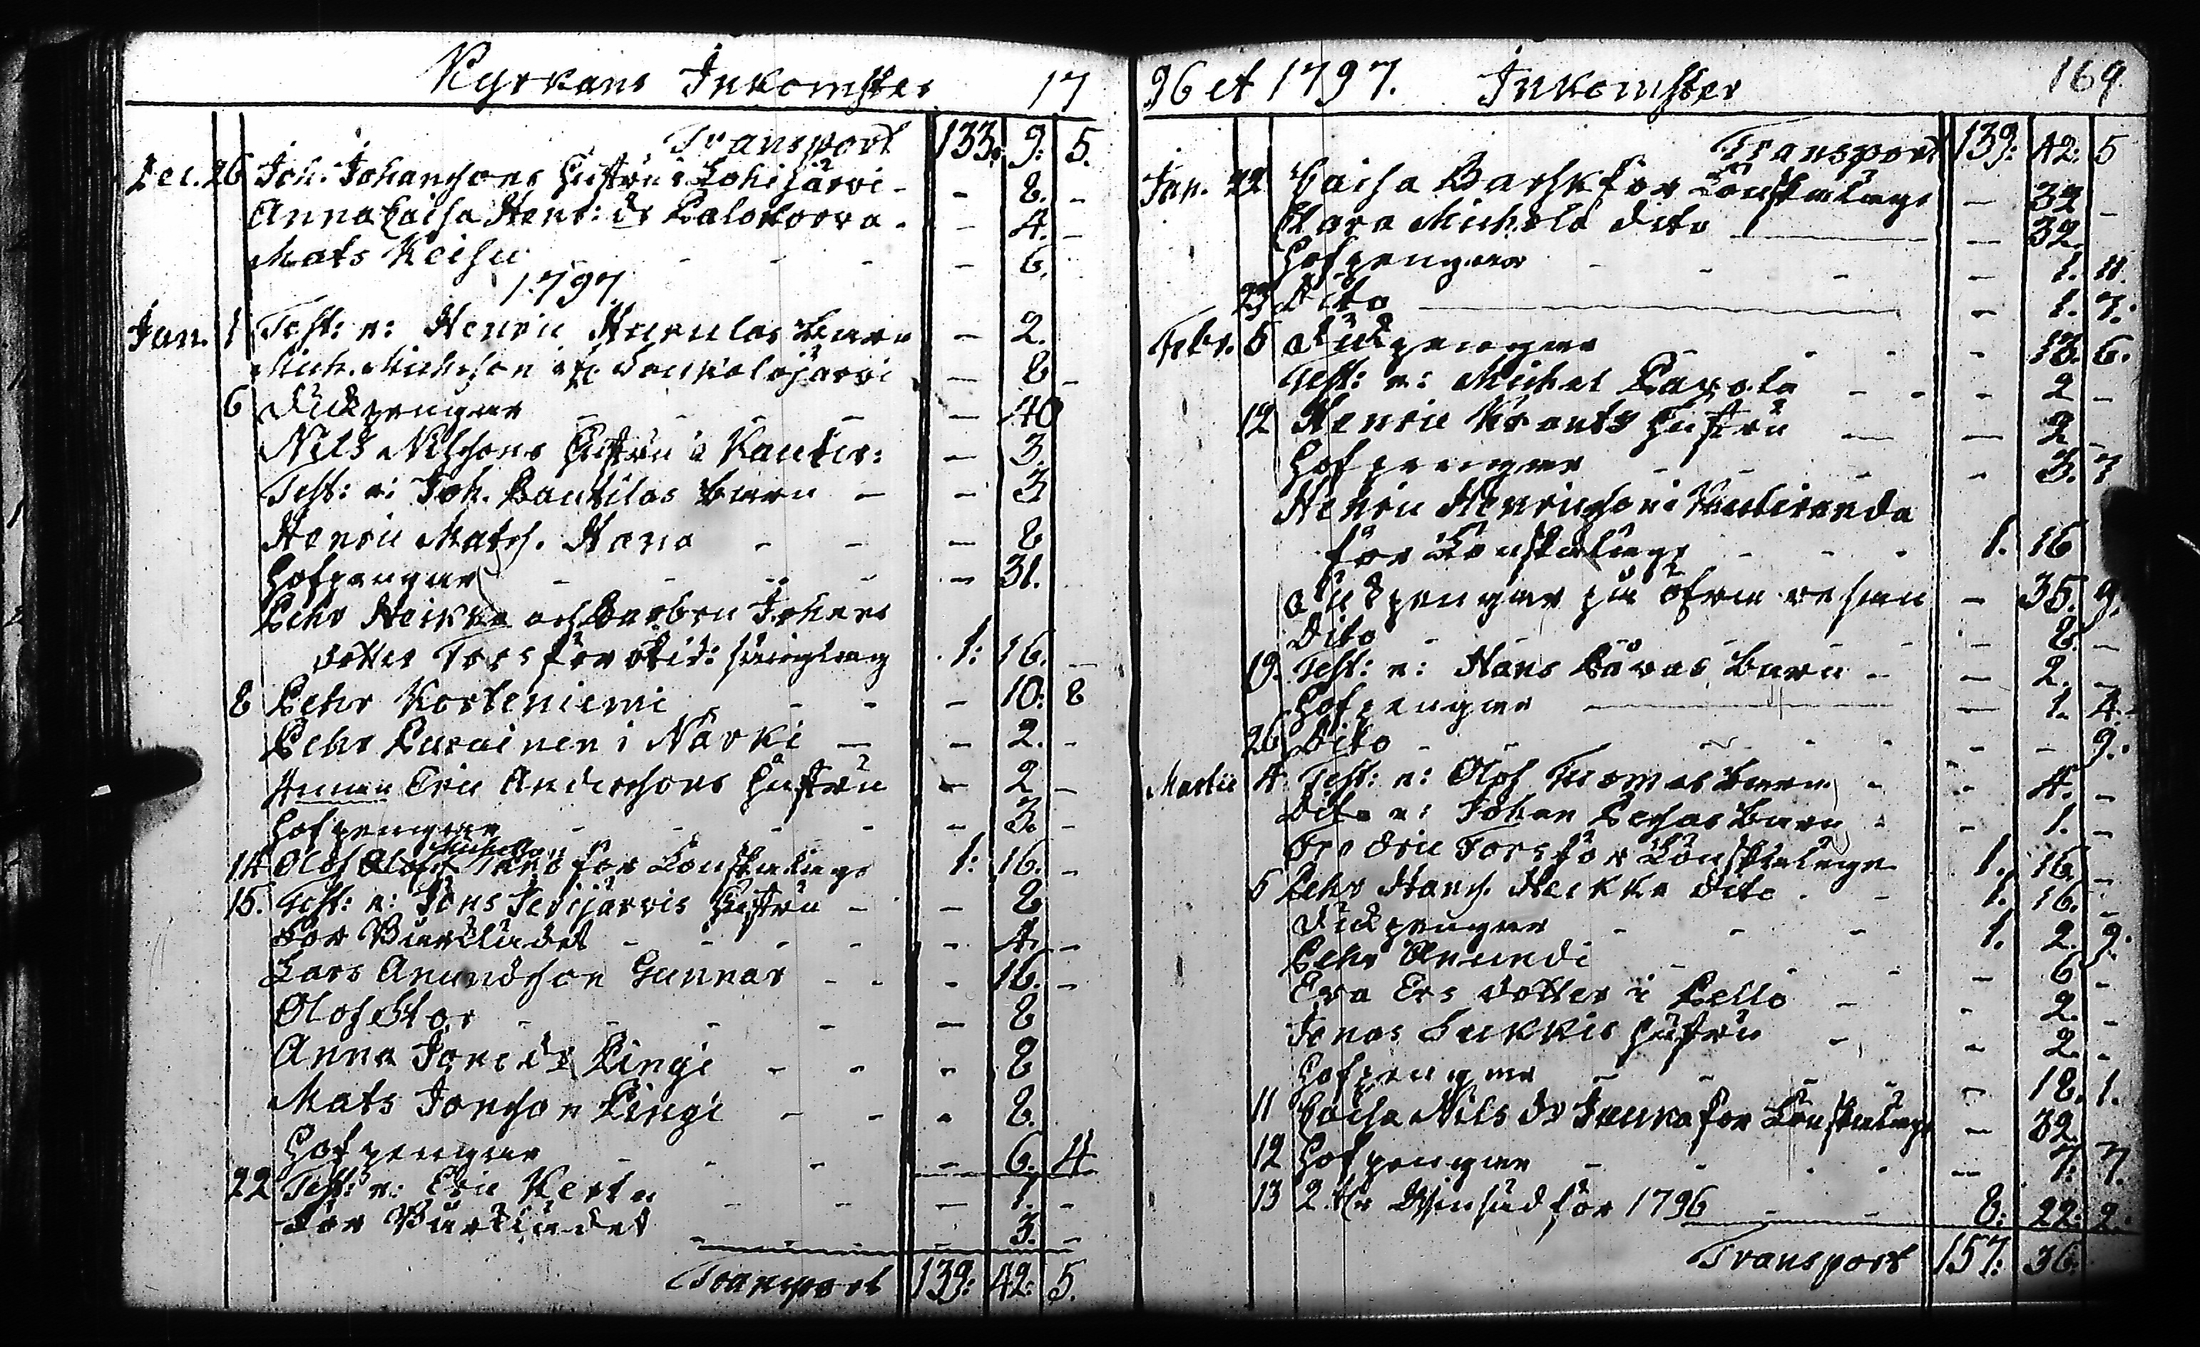 Kyrkans Inkomster 17
Transport 133: 9: 5.
Dec. 26 Joh. Johanssons hustru i Lohijärvi - - 8. -
Anna Caisa Henr: dr Palokorva - - 4. -
Mats Keisu - - - - 6.
1797
Jan. 1 Test: e: Henric barn - 2.
Mich. Michelson - 8 -
6 Säckpengar - - - - 40
Nils Nilssons hustru i Kauler: - 3.
Test: e: Joh. Bautilas barn - - 3
Henric Mats. Hana - - - 8
Hofpengar - - - - 31.
Pehr Heikka och Barbru Johans
dotter Fors för otid: sänglag 1: 16. -
8 Pehr Korteniemi - - - 10: 8
Pehr Purainen i Narki - - 2. -
Eric Anderssons hustru - 2 -
Hofpengar - - - - 3. -
14 Olof Michelsson för Lönskaläge 1: 16. -
15. Test: e: Jöns hustru - - 8
För Bårklädet - - - - 4. -
Lars Anundsson Gunnar - - - 16. -
Olof Stor - - - - 8
Anna Jons dr Pingi - - - 8
Mats Jonsson Pingi - - - 8.
Hofpengar - - - 6. 4
22 Test: e: Eric Kerta - - - 1. -
För Bårklädet - 3. -
Transport 139: 42: 5.
96 et 1797. Inkomster 169
Transport 139: 42: 5
Jan. 22 Caisa Barsk för Lönskaläge - 32 -
Clara Michels dito - 32.
Hofpengar - - - 1. 11.
23 Dito - 1. 7.
Febr. 5 Säckpengar - - - - 18. 6.
Test: e: Michel Papola - - - 2 -
12 Henric Krants hustru - - 2 -
Hofpengar - - - - 3. 7
Henric Henricsson i
för Lönskaläge - - - 1. 16
Säckpengar på öfre resan - 35. 9.
Dito - - - - 8. -
19. Test: e: Hans barn - - 2. -
Hofpengar - 1. 4.
26 Dito - - - - - 9.
Martii 4. Test: e: Olof Thomas barn - - 4. -
Dito e: Johan barn - - 1. -
Fredric Fors för Lönskaläge 1. 16. -
5 Pehr Hans. Heikka dito - - 1. 16. -
Säckpengar - - - 1. 2. 9.
Pehr Anundi - - - 6. -
Eva Ers dotter i Pello - - 2. -
Jonas Lukkis hustru - - 2. -
Hofpengar - - - - 18. 1.
11 Caisa Nils dr för Lönskaläge - 32.
12 Hofpengar - - - - 7. 7.
13 2 för 1796 - - 8: 22: 2.
Transport 157: 36.